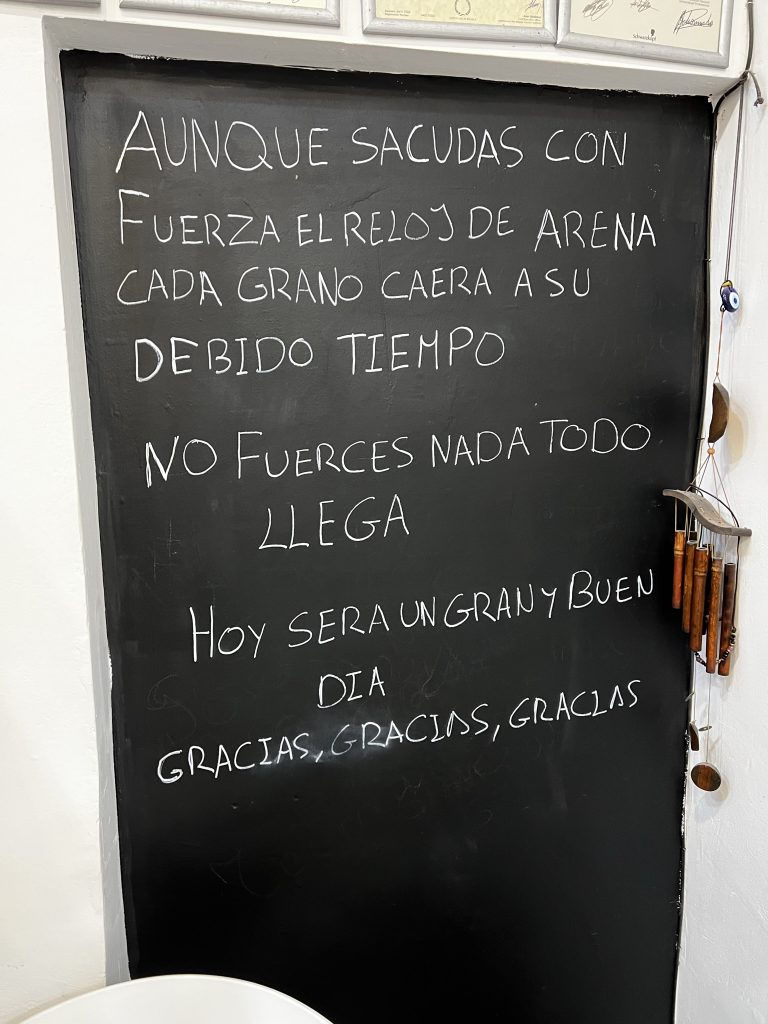 Schwarzkopf
AUNQUE SACUDAS CON
FUERZA EL RELOJ DE ARENA
CADA GRANO CAERA A SU
DEBIDO TIEMPO
NO FUERCES NADA TODO
LLEGA
HOY SERA UN GRAN Y BUEN
DIA
GRACIAS, GRACIAS, GRACIAS